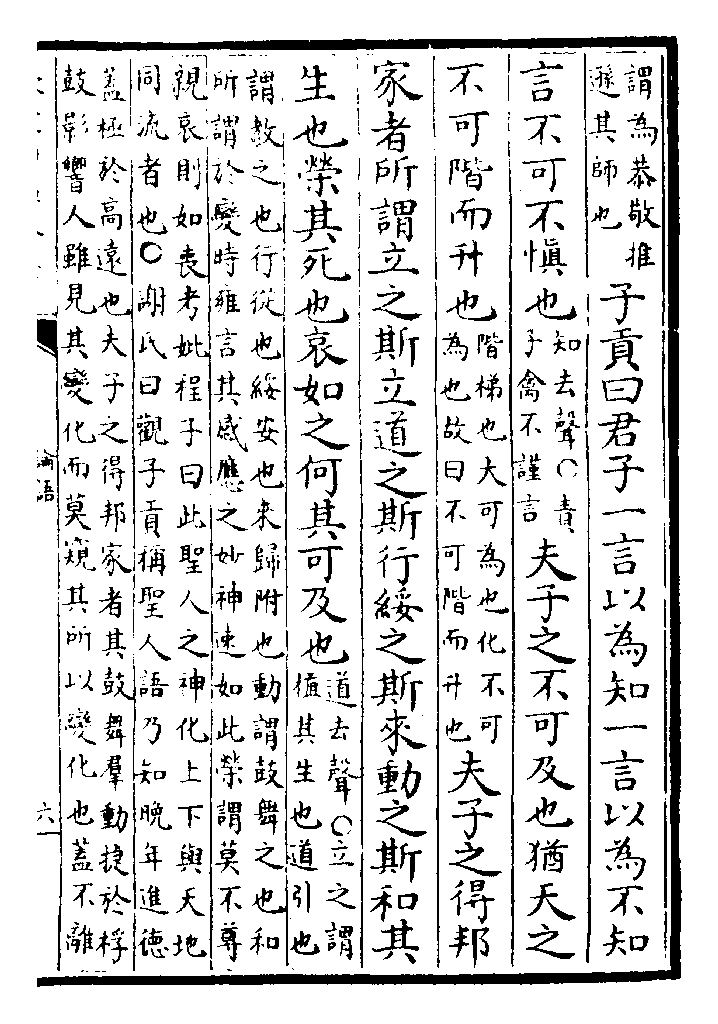 謂為恭敬推
遜其師也
子貢曰君子一言以為知一言以為不知
言不可不愼也
知去聲〇責
子禽不謹言
夫子之不可及也猶天之
不可階而升也
階梯也大可為也化不可
為也故曰不可階而升也
夫子之得邦
家者所謂立之斯立道之斯行綏之斯來動之斯和其
生也榮其死也哀如之何其可及也
道去聲〇立之謂
植其生也道引也
謂教之也行從也綏安也來歸附也動謂鼓舞之也和
所謂於變時雍言其感應之妙神速如此榮謂莫不尊
親哀則如喪考妣程子曰此聖人之神化上下與天地
同流者也〇謝氏曰觀子貢稱聖人語乃知晚年進德
蓋極於高遠也夫子之得邦家者其鼓舞羣動捷於桴
鼓影響人雖見其變化而莫窺其所以變化也蓋不離
論語
六